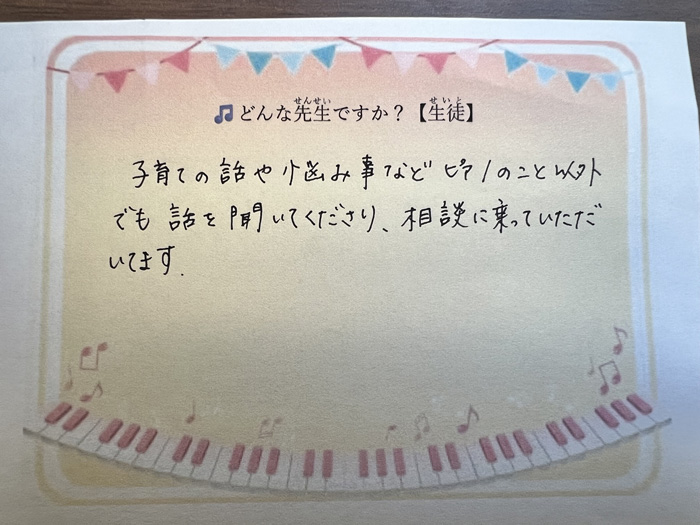 🎵どんな先生ですか？【生徒】
子育ての話や悩み事などピアノのこと以外
でも話を聞いてくださり、相談に乗っていただ
いてます.